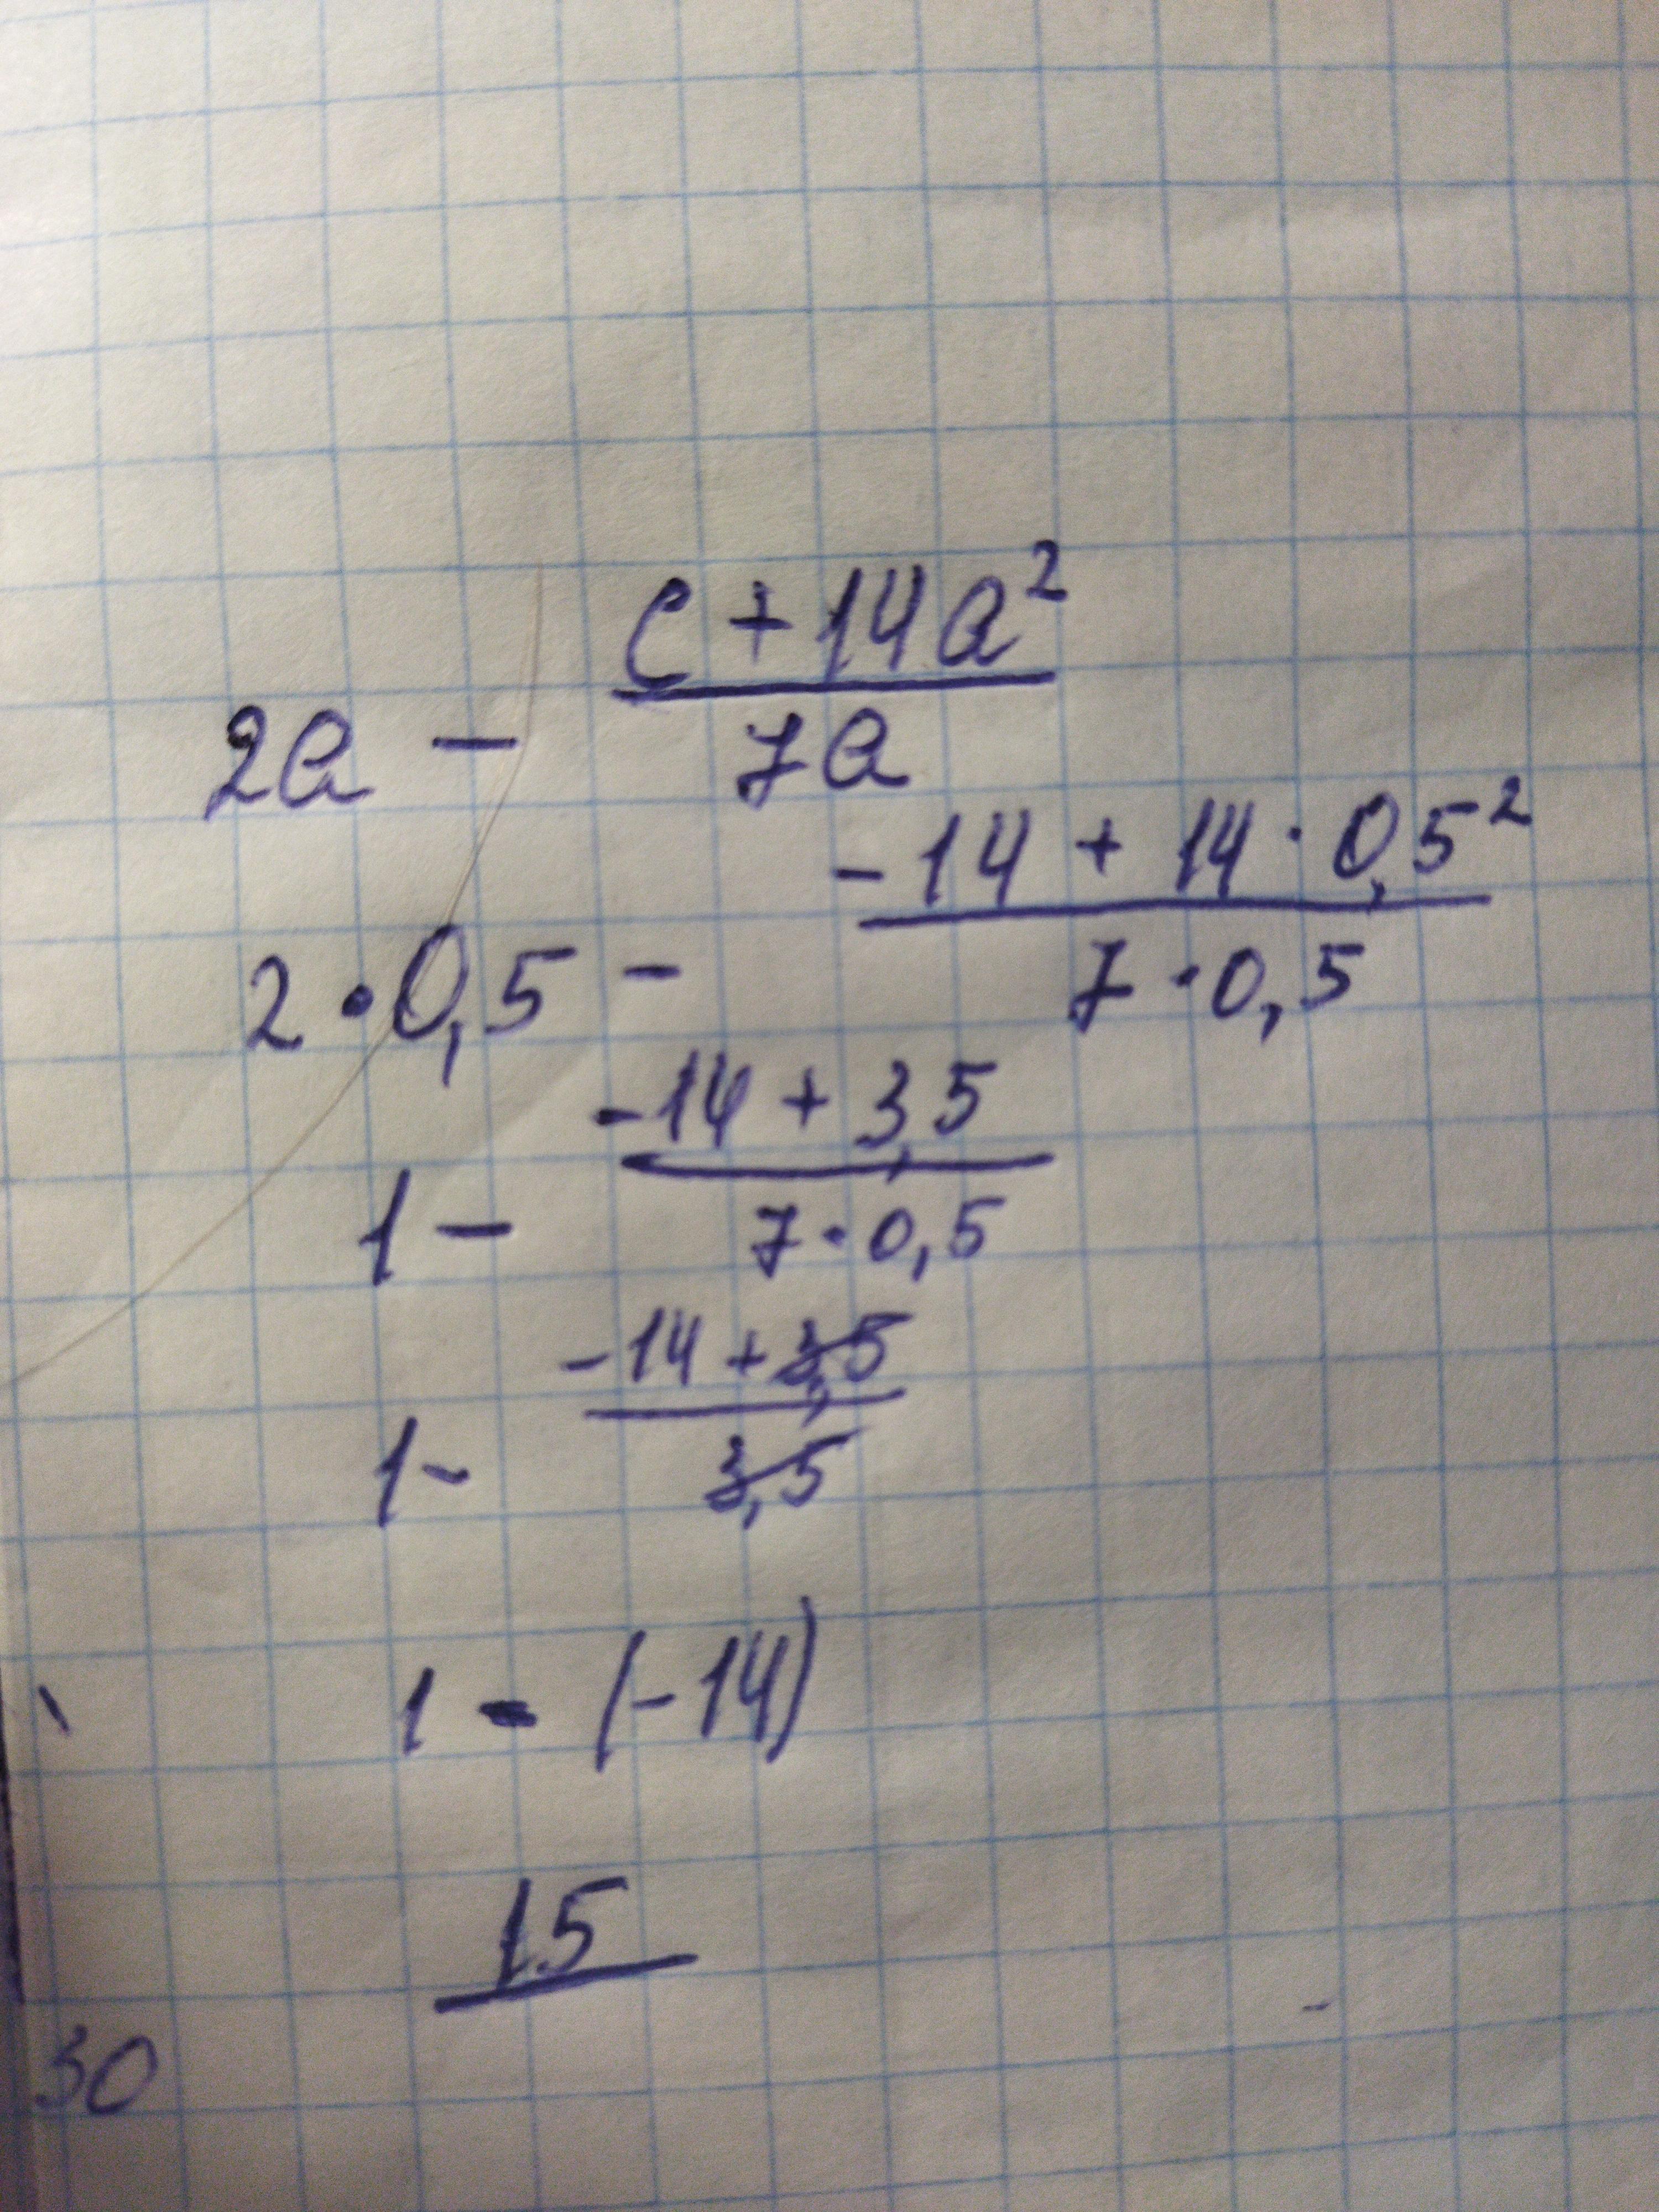 2a - (c + 14a²)/(7a)
2 · 0,5 - (-14 + 14 · 0,5²)/(7 · 0,5)
1 - (-14 + 3,5)/(7 · 0,5)
1 - (-14 + 3,5)/(3,5)
1 - (-14)
15
30